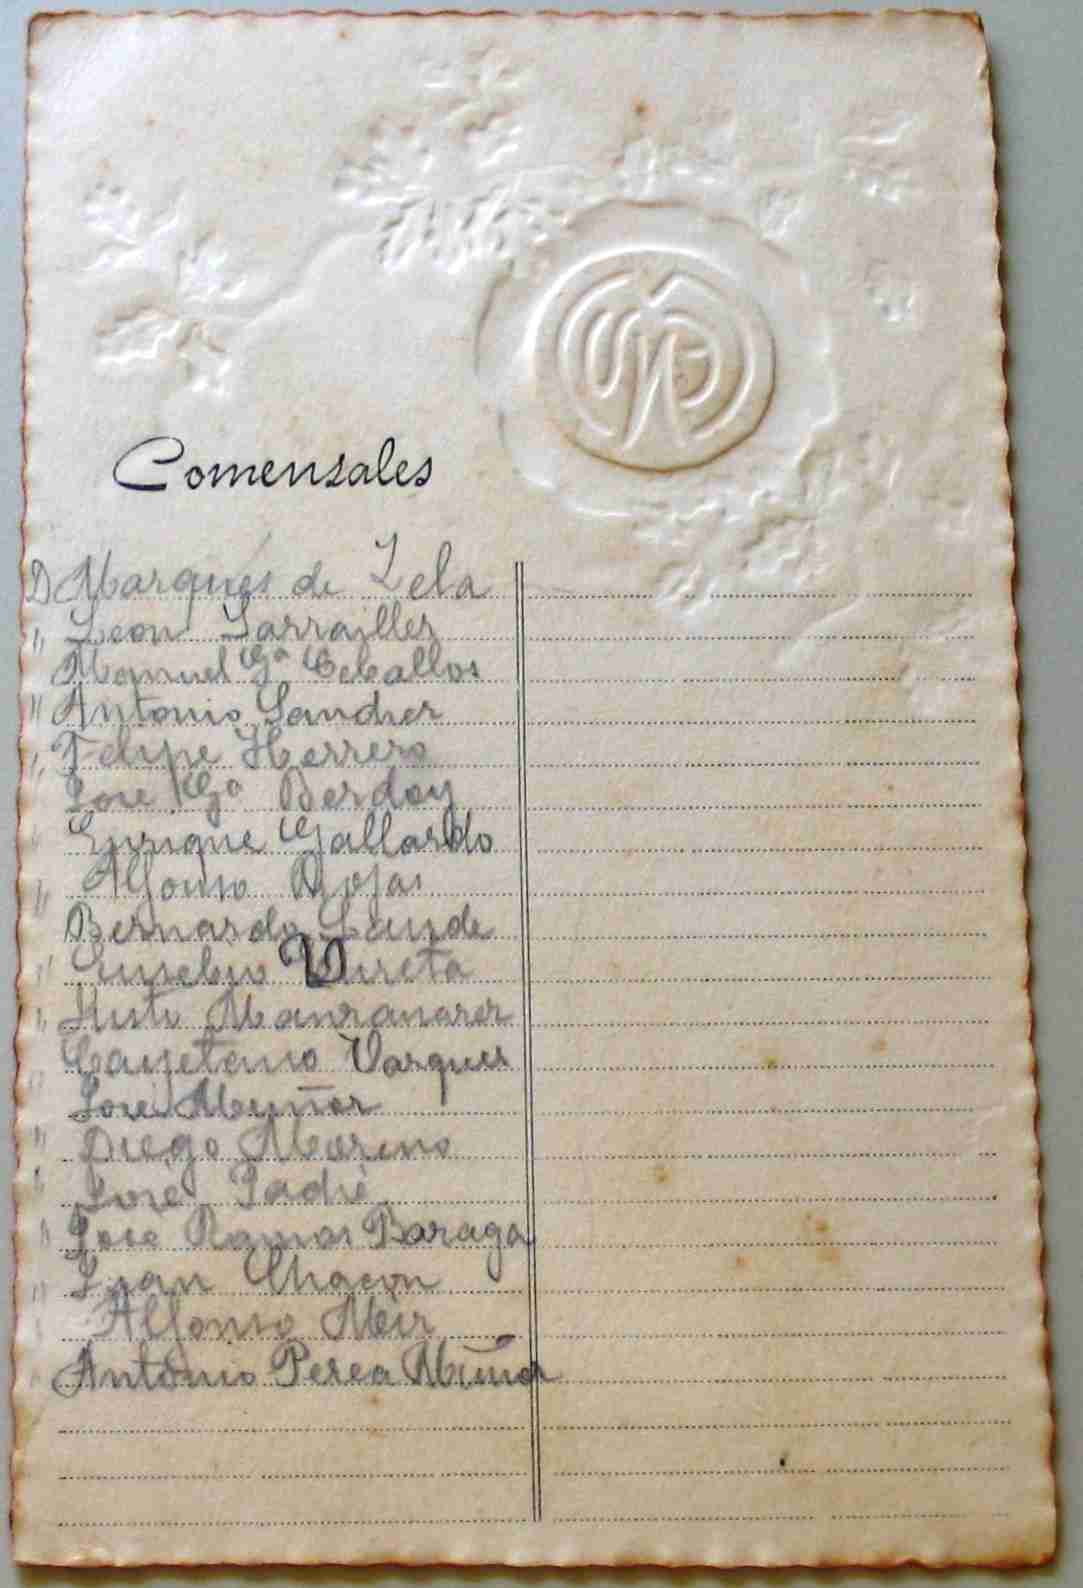 Comensales
D Marqués de Zela
" Leon Larrailler
Manuel Gª Ceballos
" Antonio Sancher
" Felipe Herrero
Jose Gª Berdoy
" Enrique Gallardo
" Alfonso Rojas
Bernardo Laude
" Eusebio Urreta
" Justo Manzanarez
Cayetano Vazquez
" Jose Muñoz
" Diego Moreno
" José Padré
" José Ramos Baraga
" Juan Chacon
" Alfonso Mir
Antonio Perea Muñoz